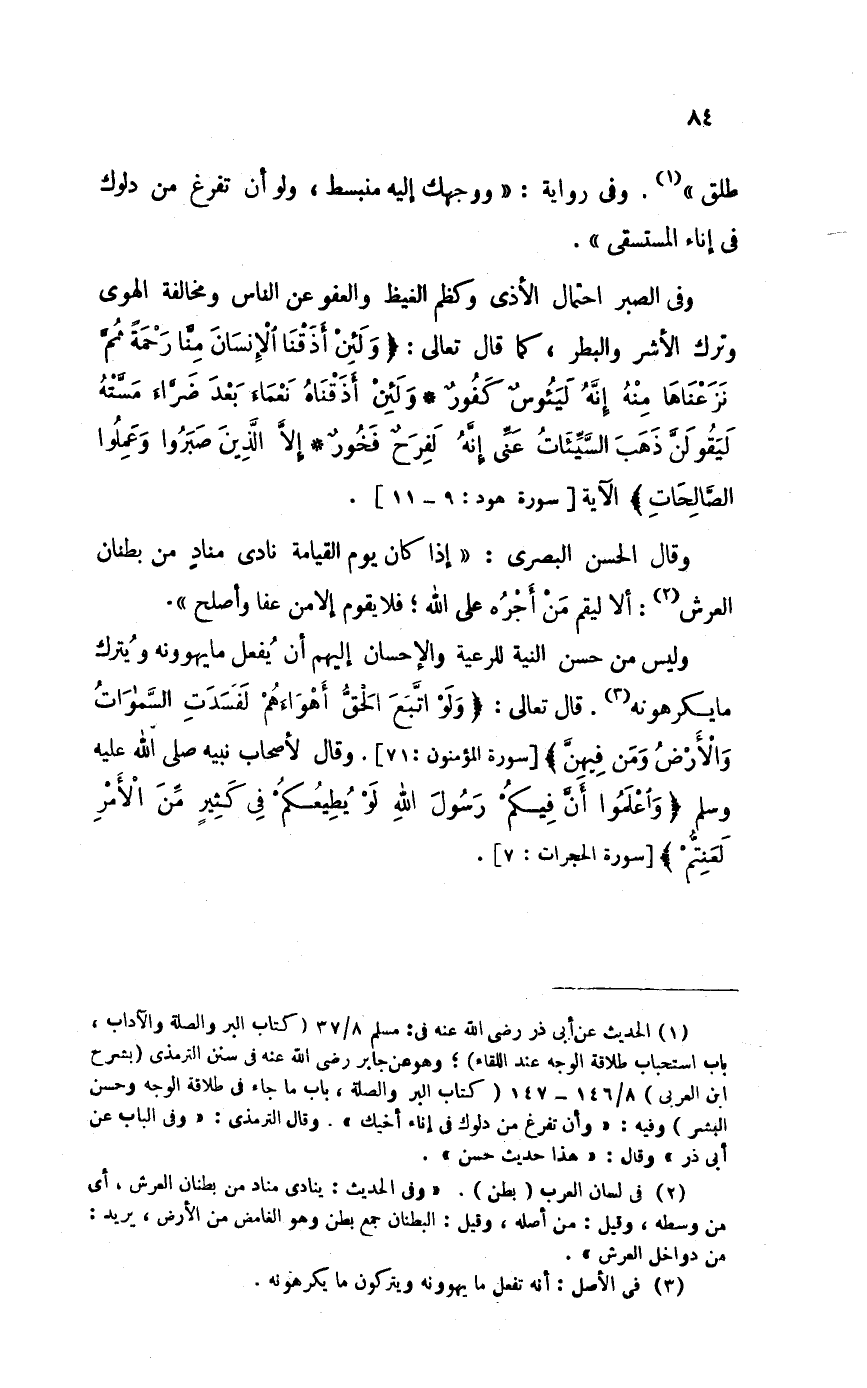 ٨٤
طلق »(١) . وفى رواية : « ووجهك إليه منبسط ، ولو أن تفرغ من دلوك
فى إناء المستسقى » .
وفى الصبر احتمال الأذى وكظم الغيظ والعفو عن الناس ومخالفة الهوى
وترك الأشر والبطر ، كما قال تعالى : ﴿ وَلَئِنْ أَذَقْنَا ٱلْإِنسَانَ مِنَّا رَحْمَةً ثُمَّ
نَزَعْنَاهَا مِنْهُ إِنَّهُ لَيَئُوسٌ كَفُورٌ * وَلَئِنْ أَذَقْنَاهُ نَعْمَاء بَعْدَ ضَرَّاء مَسَّتْهُ
لَيَقُولَنَّ ذَهَبَ السَّيِّئَاتُ عَنِّى إِنَّهُ لَفَرِحٌ فَخُورٌ * إِلاَّ الَّذِينَ صَبَرُوا وَعَمِلُوا
الصَّالِحَاتِ ﴾ الآية [ سورة هود : ٩ – ١١ ] .
وقال الحسن البصرى : « إذا كان يوم القيامة نادى منادٍ من بطنان
العرش(٢) : ألا ليقم مَنْ أَجْرُه على الله ؛ فلا يقوم إلا من عفا وأصلح » .
وليس من حسن النية للرعية والإحسان إليهم أن يُفعل مايهوونه ويُترك
مايكرهونه(٣) . قال تعالى : ﴿ وَلَوْ اتَّبَعَ الحَقُّ أَهْوَاءَهُمْ لَفَسَدَتِ السَّمٰوَاتُ
وَالْأَرْضُ وَمَن فِيهِنَّ ﴾ [سورة المؤمنون : ٧١] . وقال لأصحاب نبيه صلى الله عليه
وسلم ﴿ وَٱعْلَمُوا أَنَّ فِيكُمْ رَسُولَ اللهِ لَوْ يُطِيعُكُمْ فِى كَثِيرٍ مِّنَ الْأَمْرِ
لَعَنِتُّمْ ﴾ [سورة الحجرات : ٧] .
(١) الحديث عن أبى ذر رضى الله عنه فى : مسلم ٣٧/٨ ( كتاب البر والصلة والآداب ،
باب استحباب طلاقة الوجه عند اللقاء) ؛ وهو عن جابر رضى الله عنه فى سنن الترمذى (بشرح
ابن العربى ) ١٤٦/٨ – ١٤٧ ( كتاب البر والصلة ، باب ما جاء فى طلاقة الوجه وحسن
البشر ) وفيه : « وأن تفرغ من دلوك فى إناء أخيك » . وقال الترمذى : « وفى الباب عن
أبى ذر » وقال : « هذا حديث حسن » .
(٢) فى لسان العرب ( بطن ) . « وفى الحديث : ينادى مناد من بطنان العرش ، أى
من وسطه ، وقيل : من أصله ، وقيل : البطنان جمع بطن وهو الغامض من الأرض ، يريد :
من دواخل العرش » .
(٣) فى الأصل : أنه تفعل ما يهوونه ويتركون ما يكرهونه .